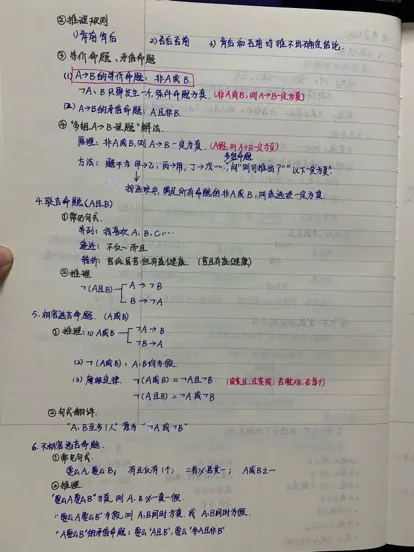 ②推理规则
1)肯前肯后 2)否后否前 3)肯后和否前对推不出确定结论
③等价命题、矛盾命题
(1) A→B的等价命题：非A或B.
¬A、B只要发生一个,条件命题为真.(非A或B,则A→B一定为真)
(2) A→B的矛盾命题：A且非B.
④“多组A→B证题”解法.
原理：非A或B,则A→B一定为真.
多组命题
方法：题干为 甲→乙,丙→
找选项中,满足所有命题的非A或B,则该选项一定为真.
4.联言命题(A且B)
①常见句式.
并列：我喜欢A、B、C…
递进：不仅…而且
转折：苦瓜虽苦但有益健康.(苦且有益健康)
②推理
¬(A且B) A→¬B
B→¬A
5.相容选言命题.(A或B)
①推理：(1) A或B ¬A→B
¬B→A
(2) ¬(A或B)：A、B均为假.
(3) 摩根定律. ¬(A或B)=¬A且¬B
¬(A且B)=¬A或¬B
②句式翻译.
“A、B至多1人”意为“¬A或¬B”
6.不相容选言命题.
①常见句式.
要么A,要么B； 有且仅有1个； 二者必居其一； A或B之一
②推理.
“要么A要么B”为真,则A、B必一真一假.
“要么A要么B”为假,则A、B同时为真 或 A、B同时为假.
“A要么B”的矛盾命题：要么“A且B”,要么“非A且非B”